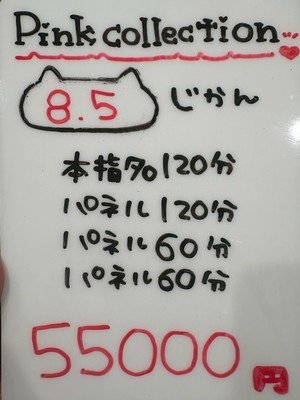 Pink collection
8.5 じかん
本指名 120分
パネル 120分
パネル 60分
パネル 60分
55000円